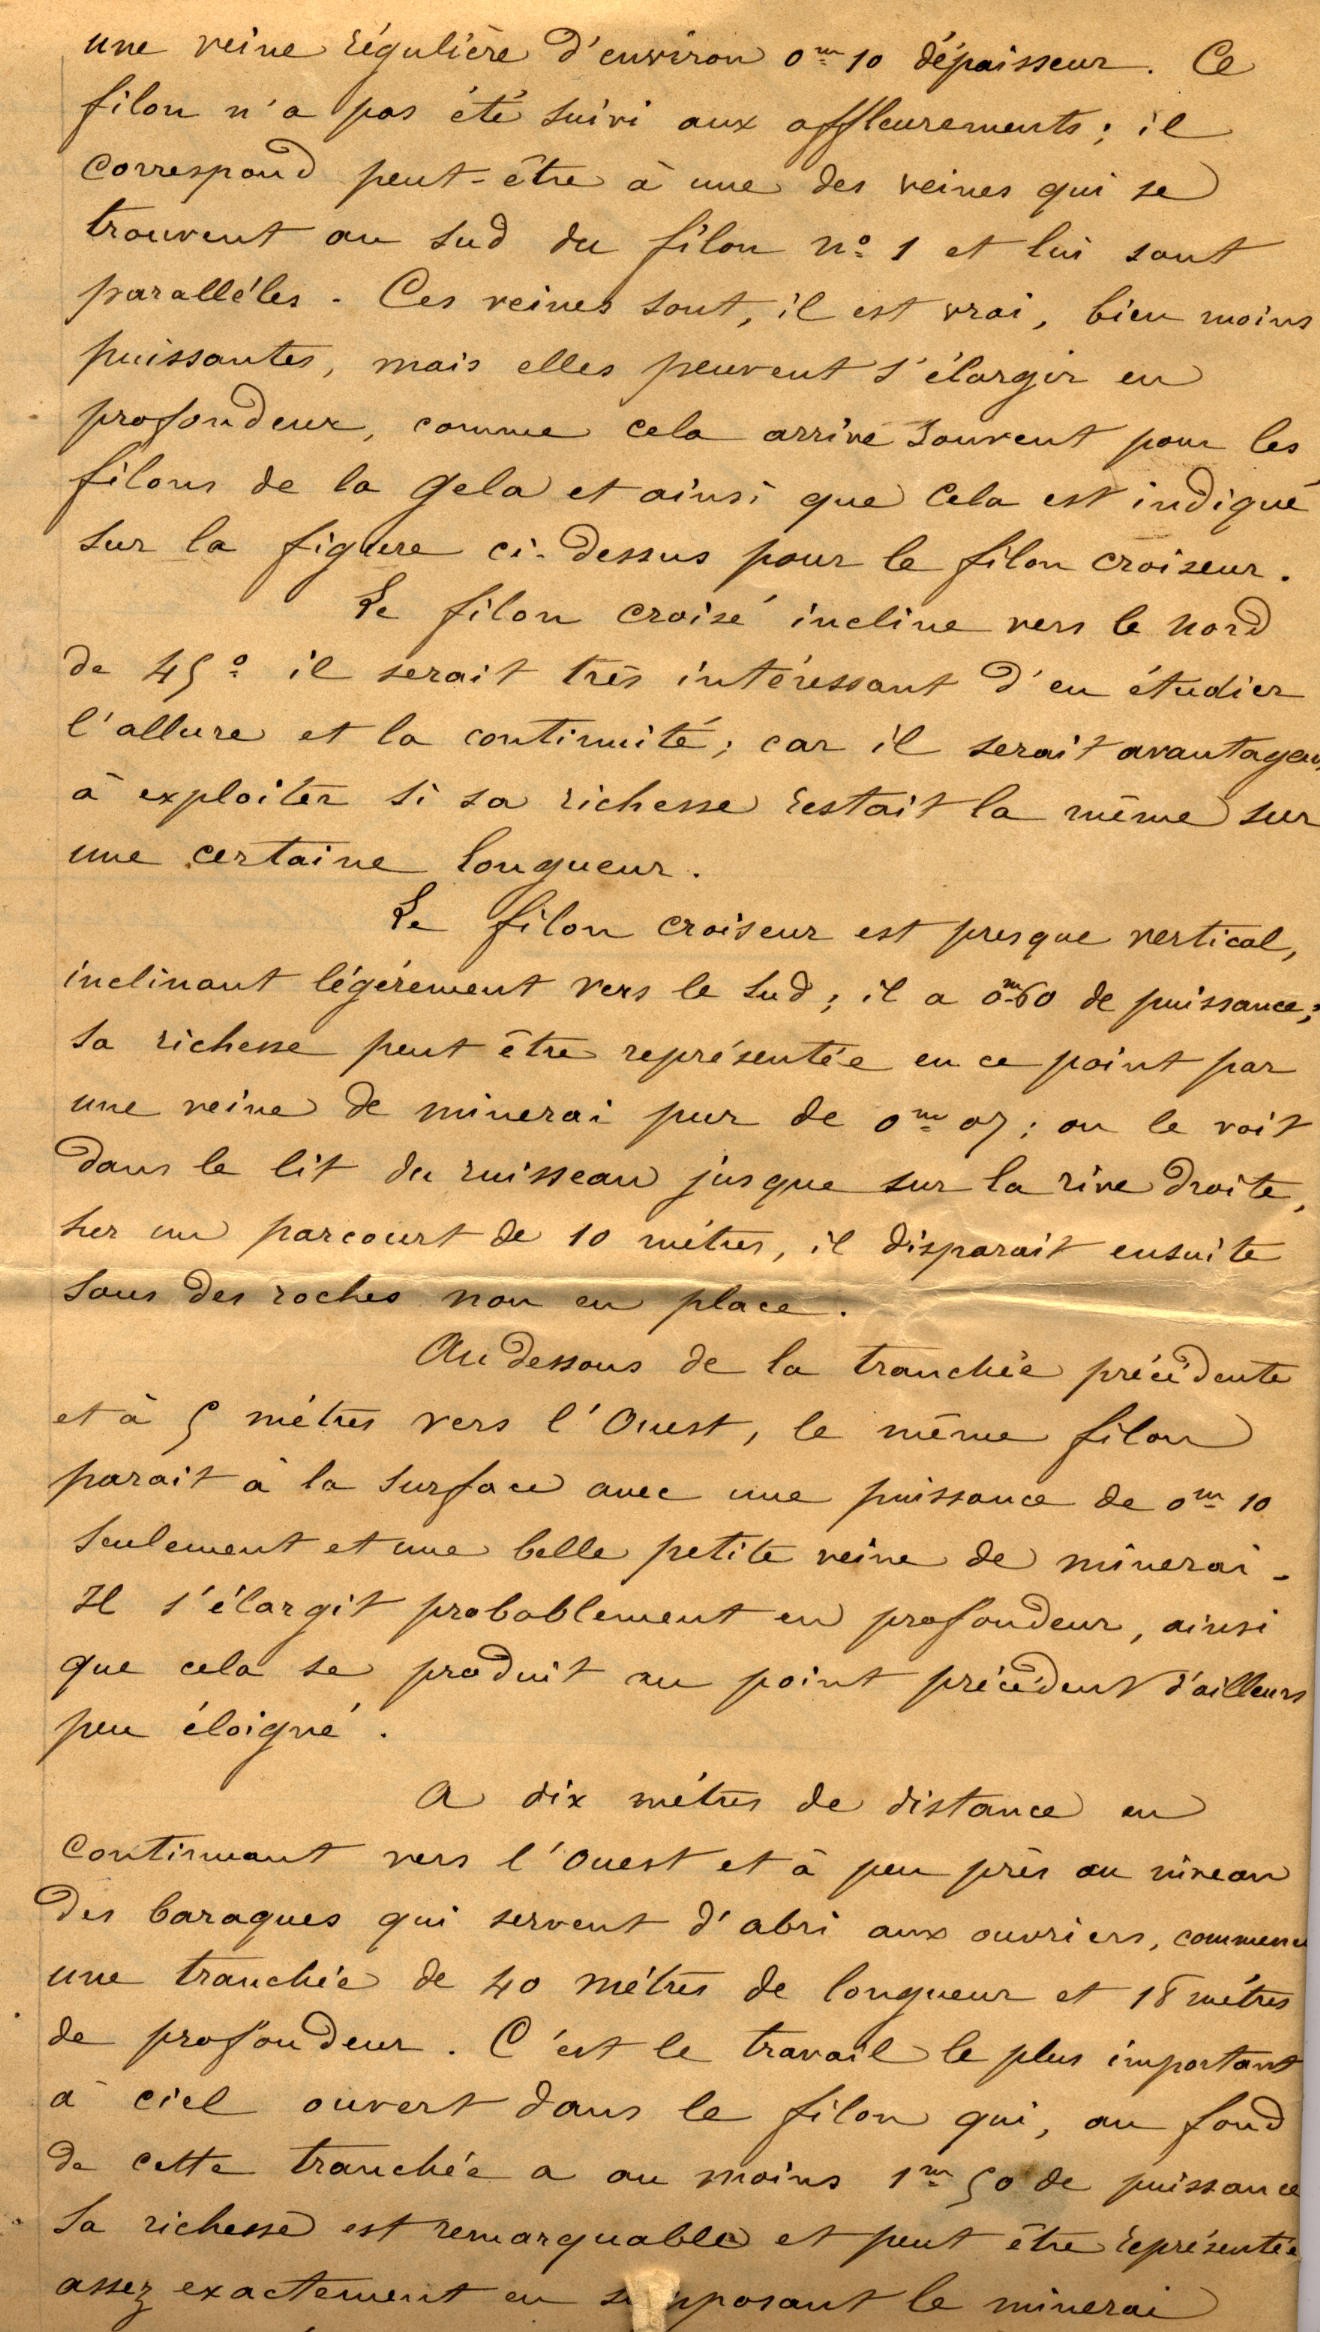 une veine régulière d'environ 0m 10 dépaisseur. Ce
filon n'a pas été suivi aux affleurements; il
correspond peut-être à une des veines qui se
trouvent au sud du filon no 1 et lui sont
paralléles. Ces veines sont, il est vrai, bien moins
puissantes, mais elles peuvent s'élargir en
profondeur, comme cela arrive souvent pour les
filons de la Gela et ainsi que cela est indiqué
sur la figure ci-dessus pour le filon croiseur.
Le filon croisé incline vers le nord
de 45o il serait très intéressant d'en étudier
l'allure et la continuité; car il serait avantageux
à exploiter si sa richesse restait la même sur
une certaine longueur.
Le filon croiseur est presque vertical,
inclinant légérement vers le sud; il a 0m60 de puissance;
sa richesse peut être représentée en ce point par
une veine de minerai pur de 0m 07; on le voit
dans le lit du ruisseau jusque sur la rive droite,
sur un parcourt de 10 métres, il disparait ensuite
sous des roches non en place.
Au dessous de la tranchée précédente
et à 5 métres vers l'Ouest, le même filon
parait à la surface avec une puissance de 0m 10
seulement et une belle petite veine de minerai.
Il s'élargit probablement en profondeur, ainsi
que cela se produit au point précédent d'ailleurs
peu éloigné.
A dix métres de distance en
continuant vers l'Ouest et à peu près au niveau
des baraques qui servent d'abri aux ouvriers, commence
une tranchée de 40 métres de longueur et 18 métres
de profondeur. C'est le travail le plus important
à ciel ouvert dans le filon qui, au fond
de cette tranchée a au moins 1m 50 de puissance
Sa richesse est remarquable et peut être représentée
assez exactement en supposant le minerai